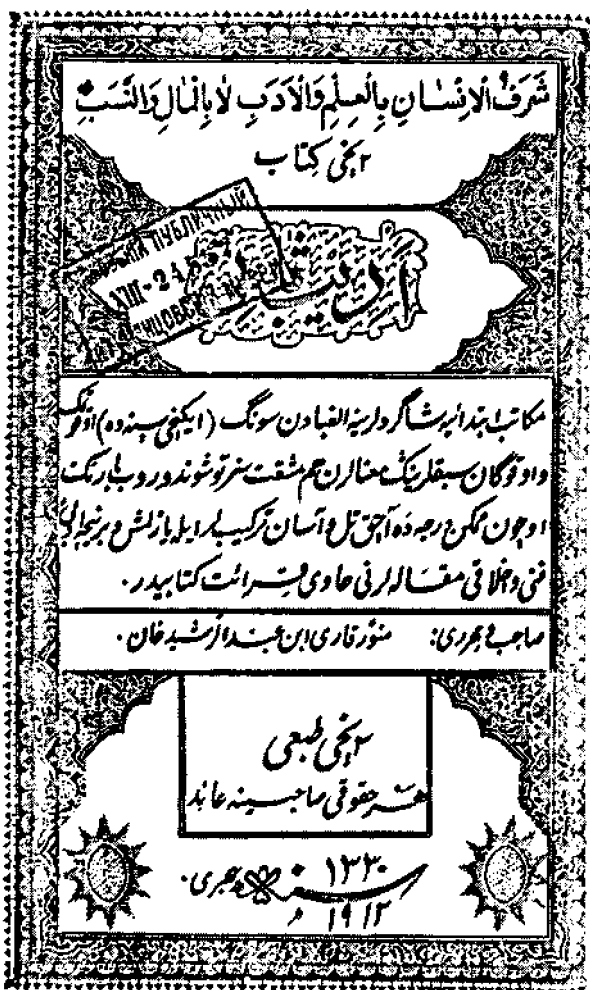 شَرَفُ الْاِنْسَانِ بِالْعِلْمِ وَالْاَدَبِ لَا بِالْمَالِ وَالنَّسَبِ
٢ نچی كِتاب
ПУБЛИЧНЫЙ
VIII-24
مکاتب ابتدائیه شاگردلرینه الفبادن سونگ (ایکنچی سنه‌ده)
واوقوگان سبقلرینگ معنالرن هم مشقت سز توشوندوروب بارنگ
اوچون ممکن درجه‌ده آچق تل و آسان ترکیب لر ایله یازلمش و برنیچه
فنی و اخلاقی مقاله لرنی حاوی قرائت کتابیدر.
صاحب و محرری: منوّر قاری ابن عبدالرشیدخان.
٣ نچی طبعی
هر حقوقی صاحبینه عائد
١٣٣٠ سنه هجری.
١٩١٢ م